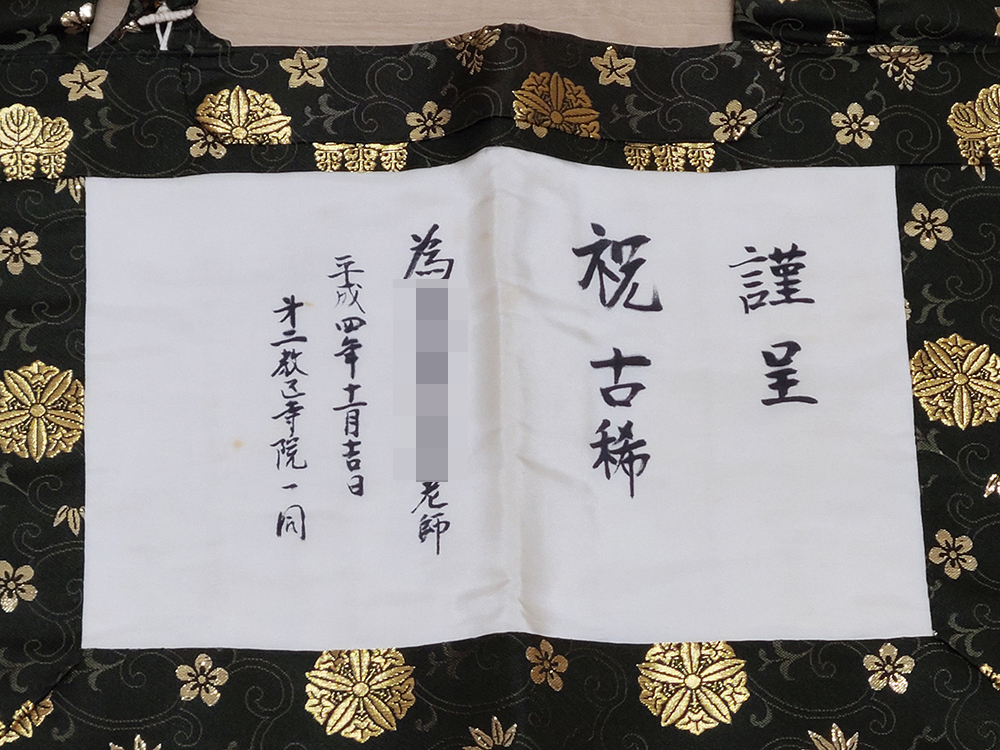 謹呈
祝古稀
為
老師
平成四年十一月吉日
才二教区寺院一同